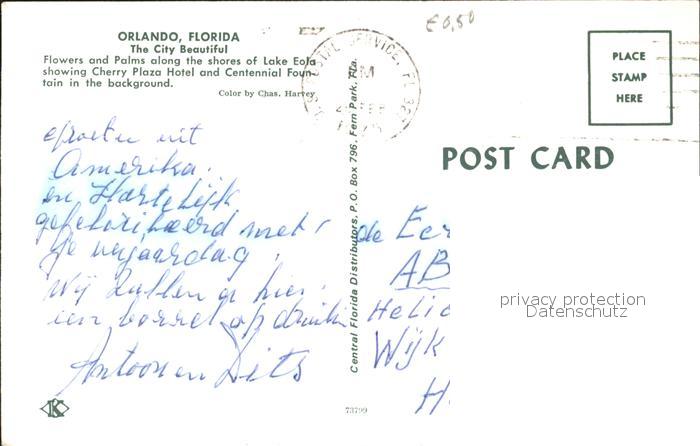 ORLANDO, FLORIDA
The City Beautiful
Flowers and Palms along the shores of Lake Eola
showing Cherry Plaza Hotel and Centennial Foun-
tain in the background.
Color by Chas. Harvey
€0,50
PLACE
STAMP
HERE
POST CARD
groeten uit
Amerika.
en Hartelijk
gefeliciteerd met
je verjaardag.
Wij zullen er hier
een borrel op drinken
Antoon en Diets
Central Florida Distributors, P.O. Box 796, Fern Park, Fla.
de Eer
AB
Helic
Wijk
H
privacy protection
Datenschutz
K
73799